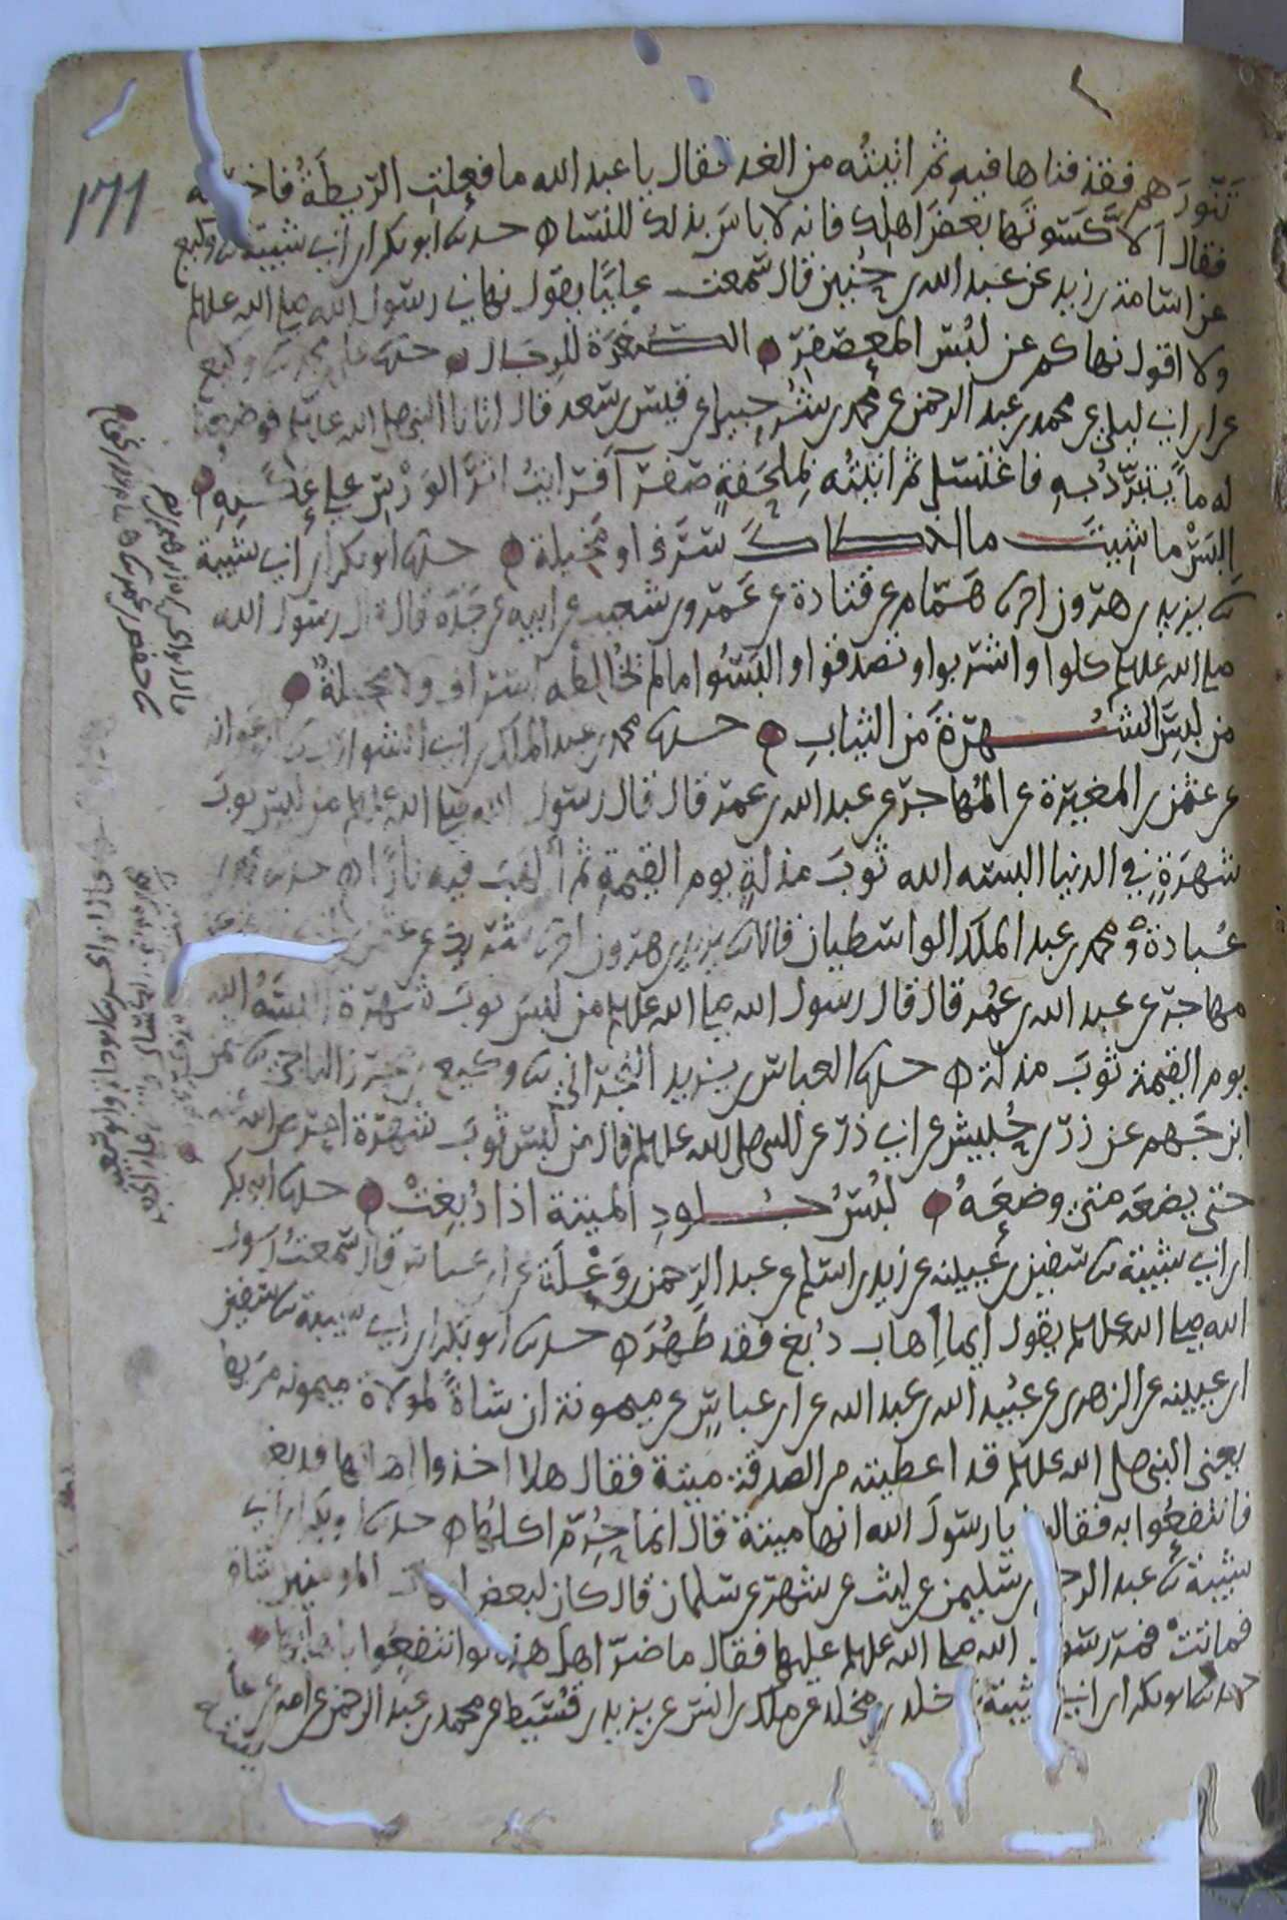 ١٧١
تنورهم فقذفناها فيه ثم اتيته من الغد فقال يا عبد الله ما فعلت الريطة فاخبرته
فقال الا كسوتها بعض اهلك فانه لا باس بذلك للنسا حدثنا ابو بكر ابن ابي شيبة ثنا وكيع
عن اسامة بن زيد عن عبد الله بن حنين قال سمعت عليا يقول نهاني رسول الله صلى الله عليه وسلم
ولا اقول نهاكم عن لبس المعصفر الصفرة للرجال حدثنا علي بن محمد ثنا وكيع
عن ابن ابي ليلى عن محمد بن عبد الرحمن عن محمد بن شرحبيل عن قيس بن سعد قال اتانا النبي صلى الله عليه وسلم فوضعنا
له ما يتبرد به فاغتسل ثم اتيته بملحفة صفرا فرايت اثر الورس على عكنه
البس ما شيت ما اخطاك سرف او مخيلة حدثنا ابو بكر ابن ابي شيبة
ثنا يزيد بن هرون اخبرنا همام عن قتادة عن عمرو بن شعيب عن ابيه عن جده قال قال رسول الله
صلى الله عليه وسلم كلوا واشربوا وتصدقوا والبسوا ما لم يخالطه اسراف ولا مخيلة
من لبس الشهرة من الثياب حدثنا محمد بن عبد الملك بن ابي الشوارب ثنا ابو عوانه
عن عثمن بن المغيرة عن المهاجر عن عبد الله بن عمر قال قال رسول الله صلى الله عليه وسلم من لبس ثوب
شهرة في الدنيا البسه الله ثوب مذلة يوم القيمة ثم الهب فيه نارا حدثنا محمد بن
عبادة ومحمد بن عبد الملك الواسطيان قالا ثنا يزيد بن هرون اخبرنا شريك عن عثمن
مهاجر عن عبد الله بن عمر قال قال رسول الله صلى الله عليه وسلم من لبس ثوب شهرة البسه الله
يوم القيمة ثوب مذلة حدثنا العباس بن يزيد البحراني ثنا وكيع بن محرز الناجي ثنا عثمن
ابن جهم عن زر بن حبيش عن ابي ذر عن النبي صلى الله عليه وسلم قال من لبس ثوب شهرة اعرض الله عنه
حتى يضعه متى وضعه لبس جلود الميتة اذا دبغت حدثنا ابو بكر
ابن ابي شيبة ثنا سفين بن عيينه عن زيد بن اسلم عن عبد الرحمن بن وعلة عن ابن عباس قال سمعت رسول
الله صلى الله عليه وسلم يقول ايما اهاب دبغ فقد طهر حدثنا ابو بكر ابن ابي شيبة ثنا سفين
ابن عيينه عن الزهري عن عبيد الله بن عبد الله عن ابن عباس عن ميمونة ان شاة لمولاة ميمونه مر بها
يعني النبي صلى الله عليه وسلم قد اعطيته من الصدقة ميتة فقال هلا اخذوا اهابها فدبغ
فانتفعوا به فقالوا يا رسول الله انها ميتة قال انما حرم اكلها حدثنا ابو بكر ابن ابي
شيبة ثنا عبد الرحيم بن سليمن عن ليث عن شهر عن سلمان قال كان لبعض امهات المومنين شاة
فماتت فمر رسول الله صلى الله عليه وسلم عليها فقال ما ضر اهل هذه لو انتفعوا باهابها
حدثنا ابو بكر ابن ابي شيبة ثنا خلد بن مخلد عن ملك بن انس عن يزيد بن قسيط عن محمد بن عبد الرحمن عن امه عن عائشة